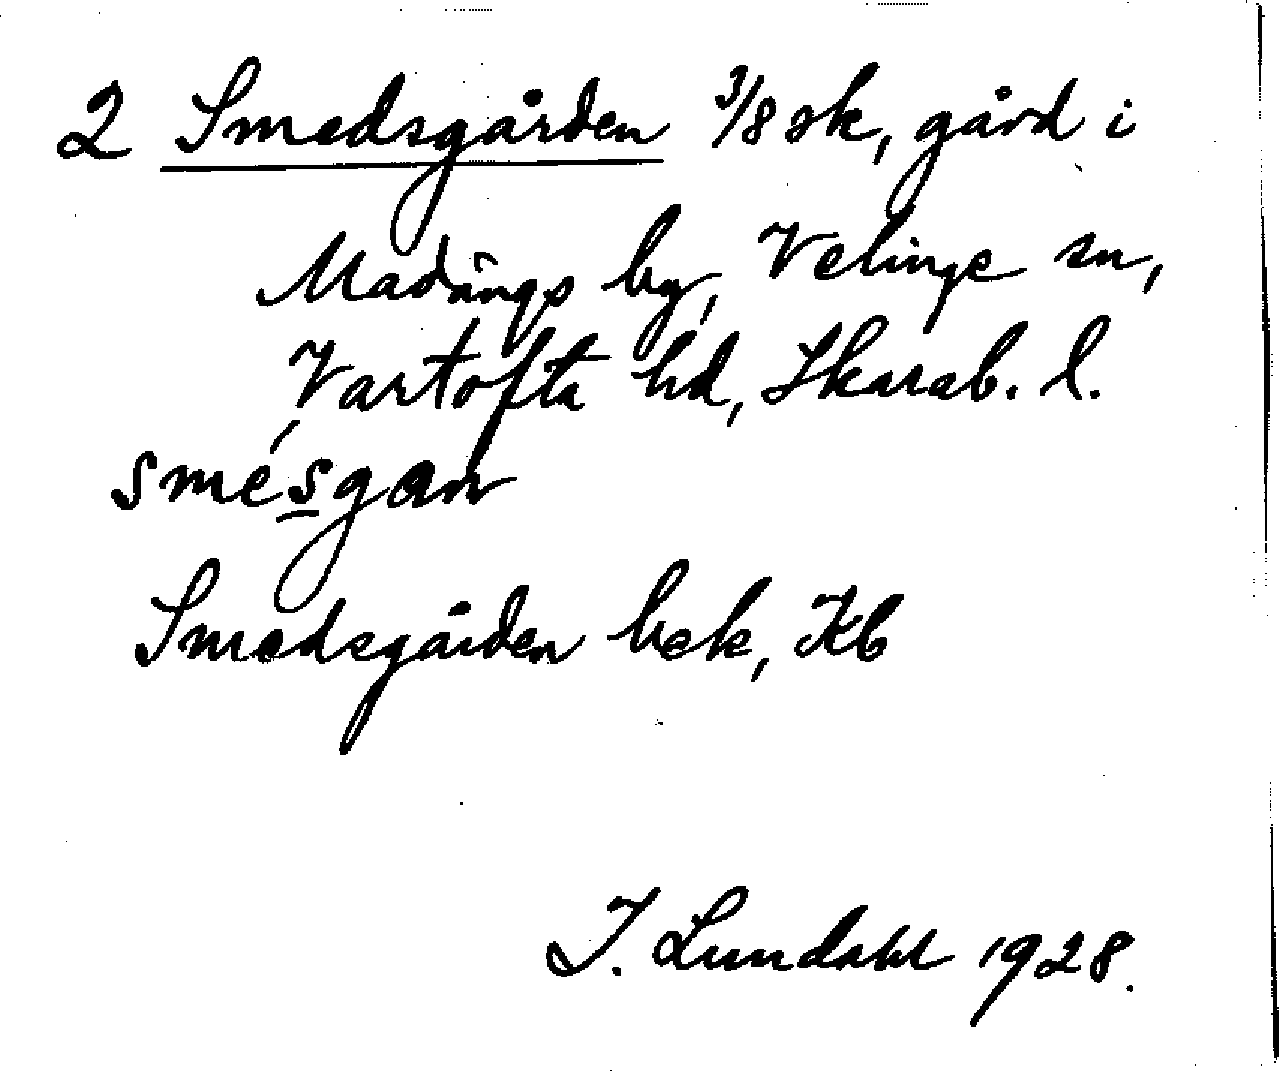 2 Smedsgården 3/8 sk, gård i
Madängs by, Velinge sn,
Vartofta hd, Skarab. l.
smésgan
Smedsgården bek, Kb
I. Lundahl 1928.